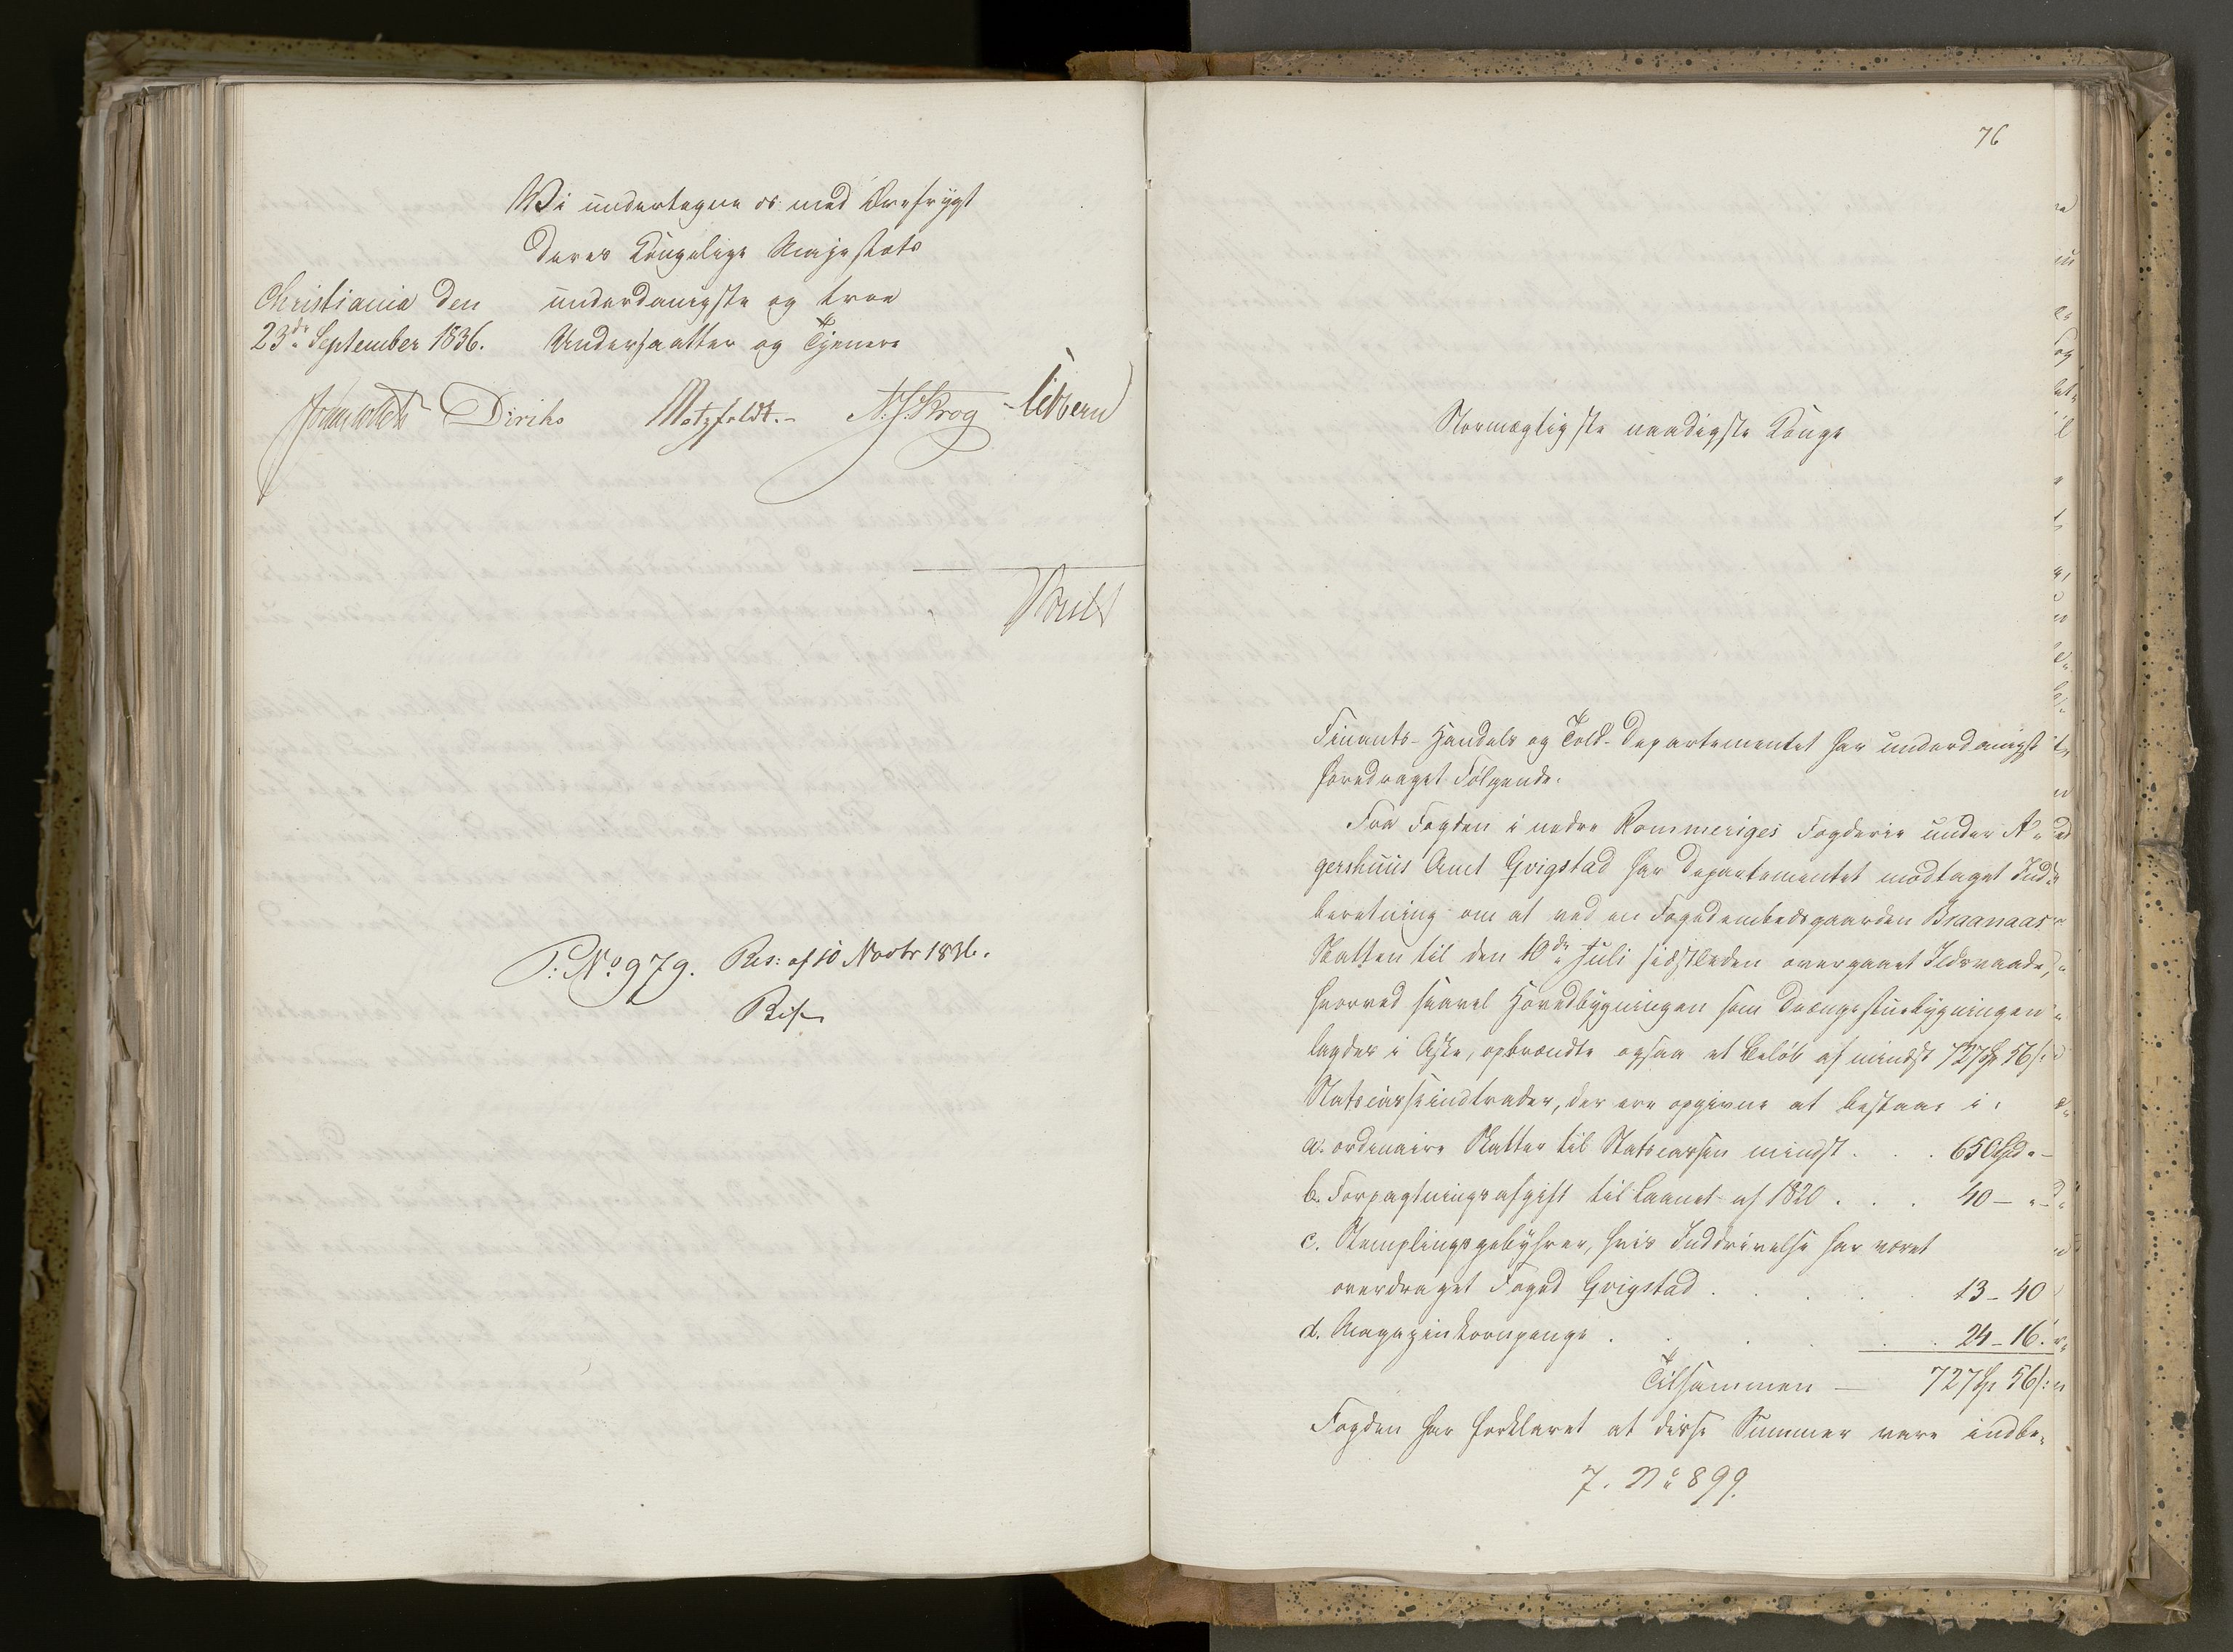 Wi undertegne os med Ærefrygt
Deres Kongelige Majestæts
Christiania den underdanigste og troe
23de September 1836. Undersaatter og Tjenere
Diriks Motzfeldt. N. J. Krog Sibbern
P: No 979. Res: af 10 Novbr 1836.
76
Stormægtigste naadigste Konge
Finants- Handels og Told-Departementet har underdanigst
foredraget Følgende:
Fra Fogden i nedre Rommeriges Fogderie under A-
gershuus Amt Qvigstad har Departementet modtaget Ind-
beretning om at ved en Fogedembedsgaarden Braanaas
Natten til den 10de Juli sidstleden overgaaet Ildsvaade,
hvorved saavel Hovedbygningen som Drængestuebygningen
lagdes i Aske, opbrændte ogsaa et Beløb af mindst 727 Sp 56 s:
Statscasseindtræder, der ere opgivne at bestaae i:
a. ordinaire Skatter til Statscassen mindst . . . 650 Spd. -
b. Forpagtningsafgift til Laanet af 1820 . . . 40 - " -
c. Stemplingsgebyhrer, hvis Inddrivelse har været
overdraget Foged Qvigstad . . . 13 - 40
d. Magazinkornpenge . . . 24 - 16.
Tilsammen — 727 Sp 56 s:
Fogden har forklaret at disse Summer vare indbe-
7. No 899.